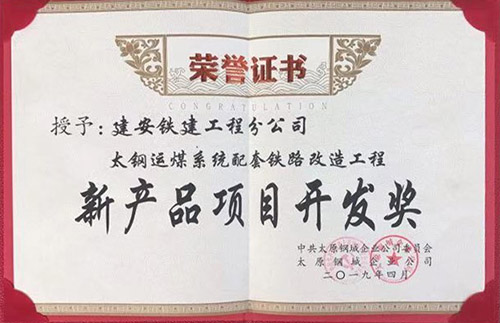 荣誉证书
CONGRATULATION
授予：建安铁建工程分公司
太钢运煤系统配套铁路改造工程
新产品项目开发奖
中共太原钢城企业公司委员会
太原钢城企业公司
二〇一九年四月